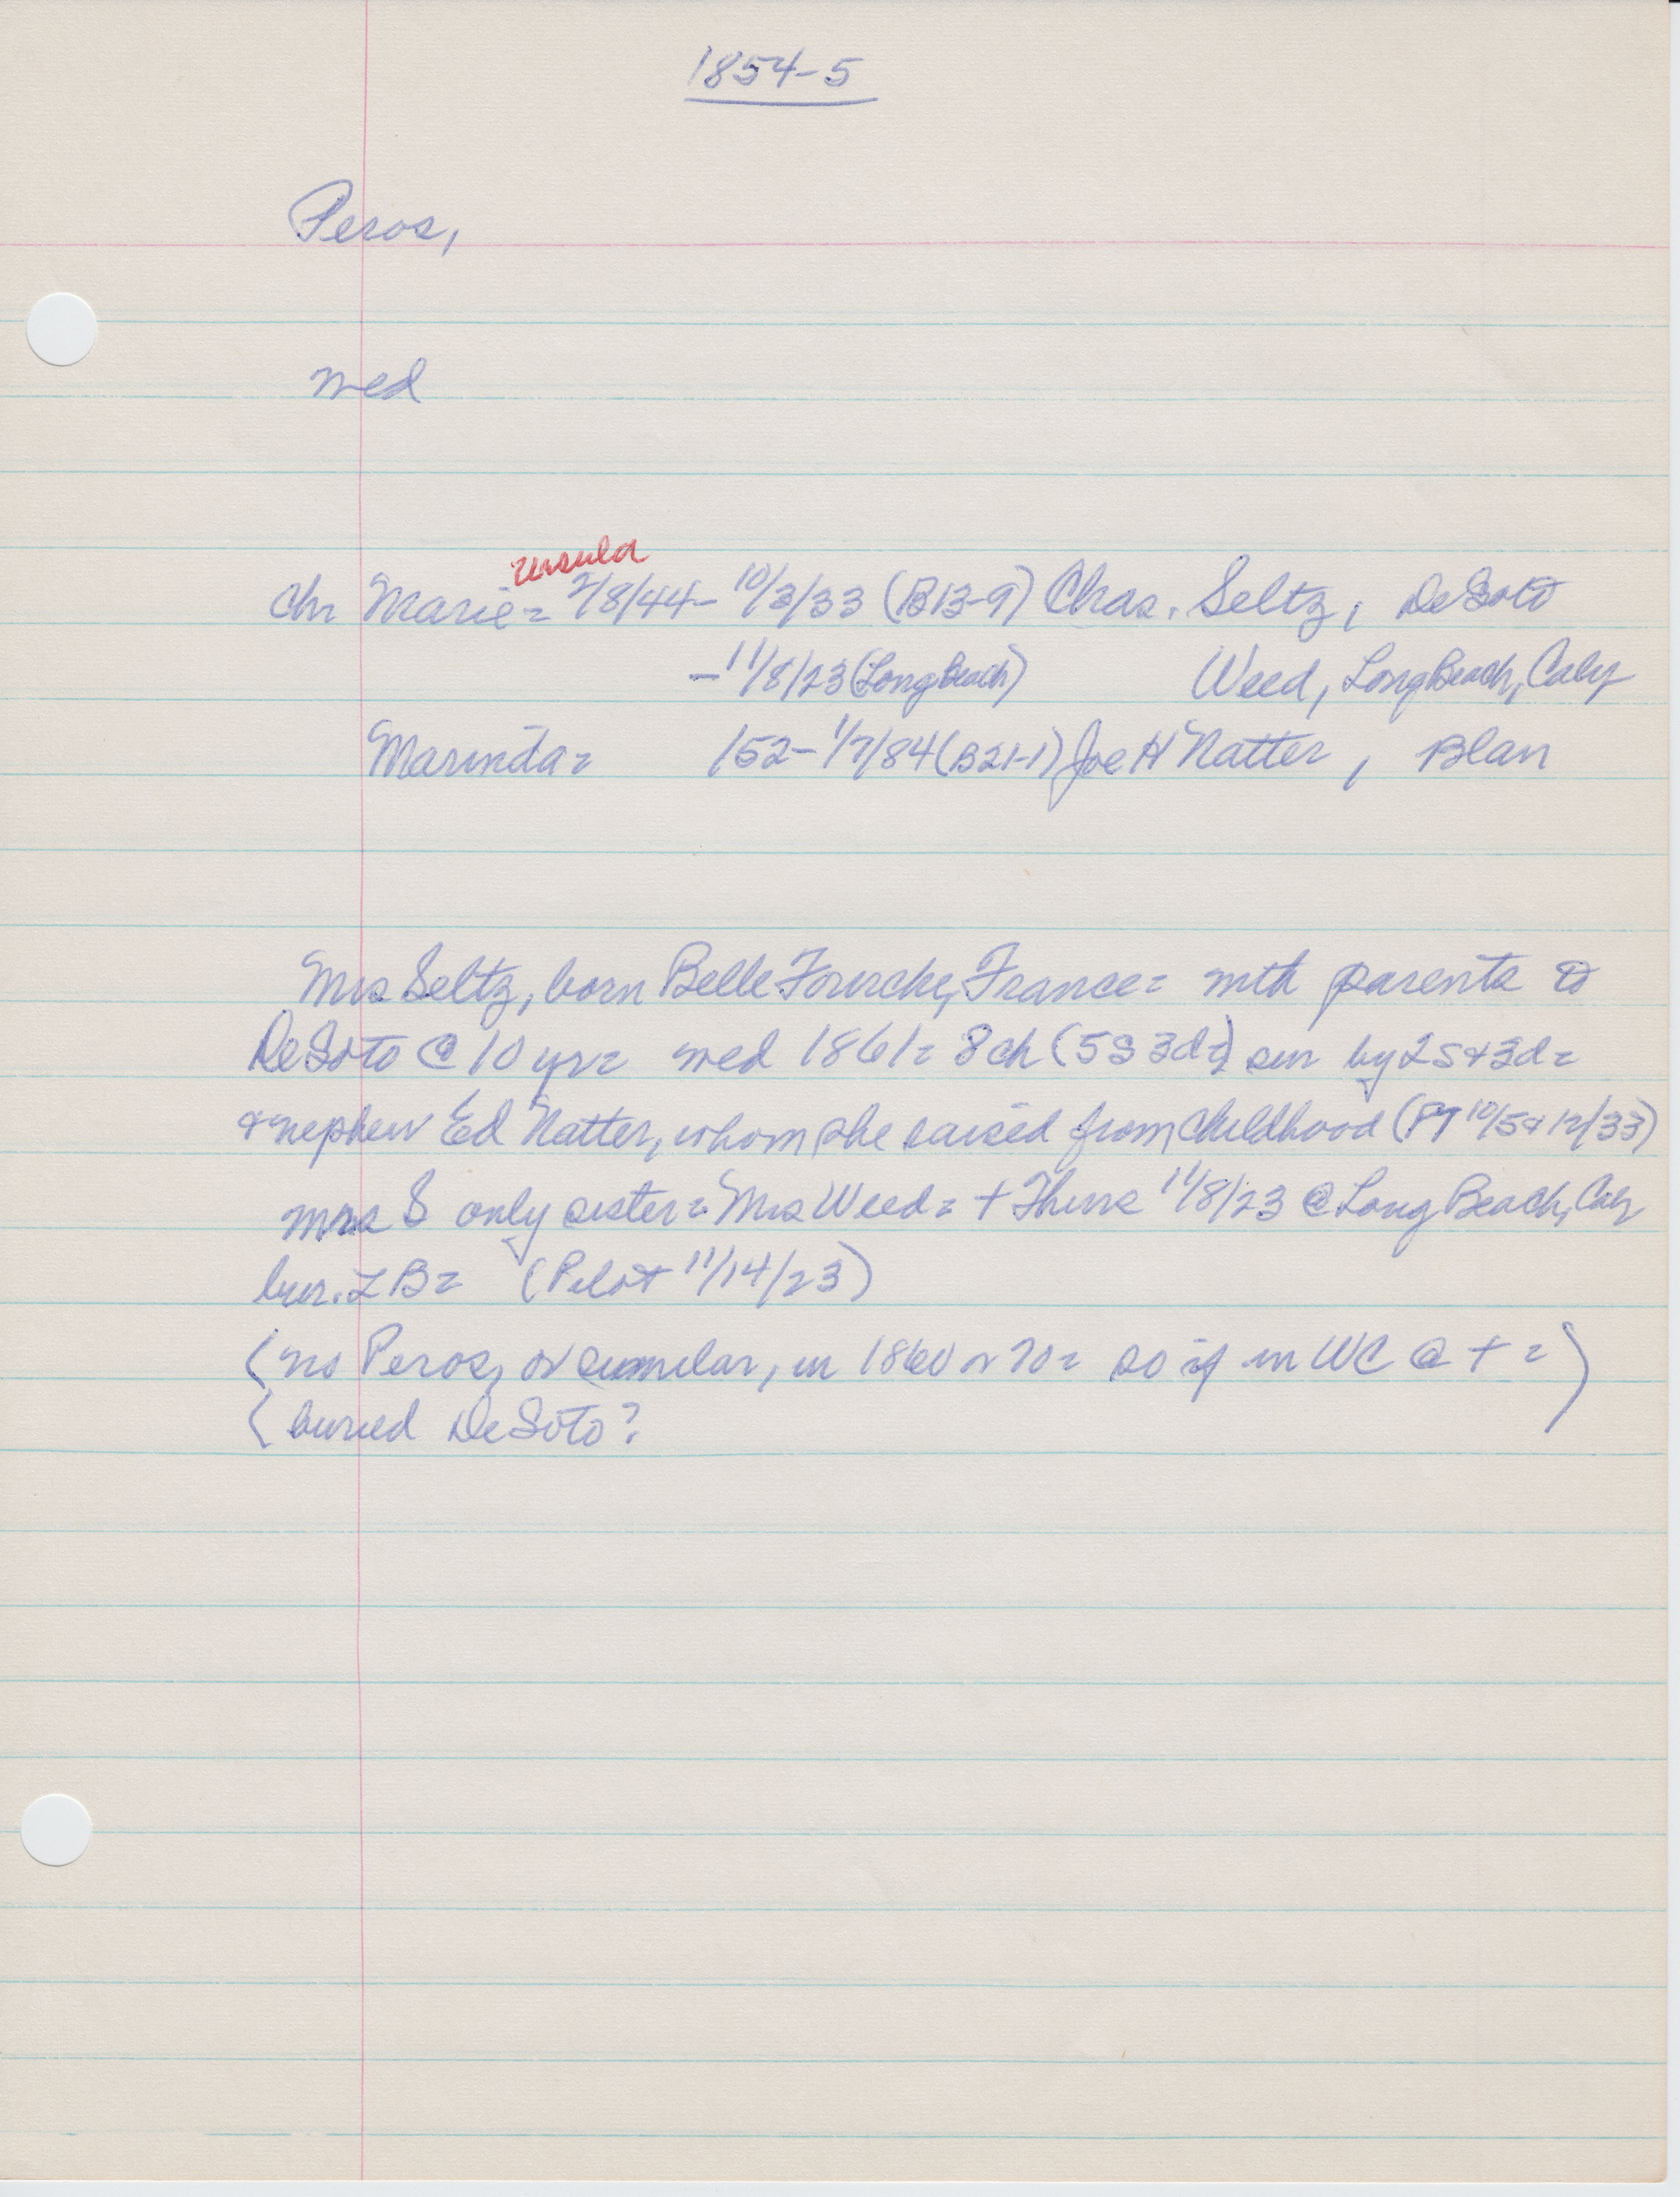 1854-5
Peros,
med
ursula
chr Marie = 2/8/44 - 10/3/33 (B13-9) Chas. Seltz, DeSoto
- 11/8/23 (Long Beach) Weed, Long Beach, Calif
Marinda = /52 - 1/7/84 (B21-1) Joe H Natter, Blair
Mrs Seltz, born Belle Fourche, France = with parents to
DeSoto @ 10 yr = med 1861 = 8 ch (5s 3d =) sur by 2s + 3d =
+ nephew Ed Natter, whom she raised from childhood (PT 10/5 + 12/33)
mrs S only sister = Mrs Weed = + Thurs 11/8/23 @ Long Beach, Calif
bur. LB = (Pilot 11/14/23)
(no Peros, or similar, in 1860 or 70 = so if in WC @ + =)
(buried DeSoto?